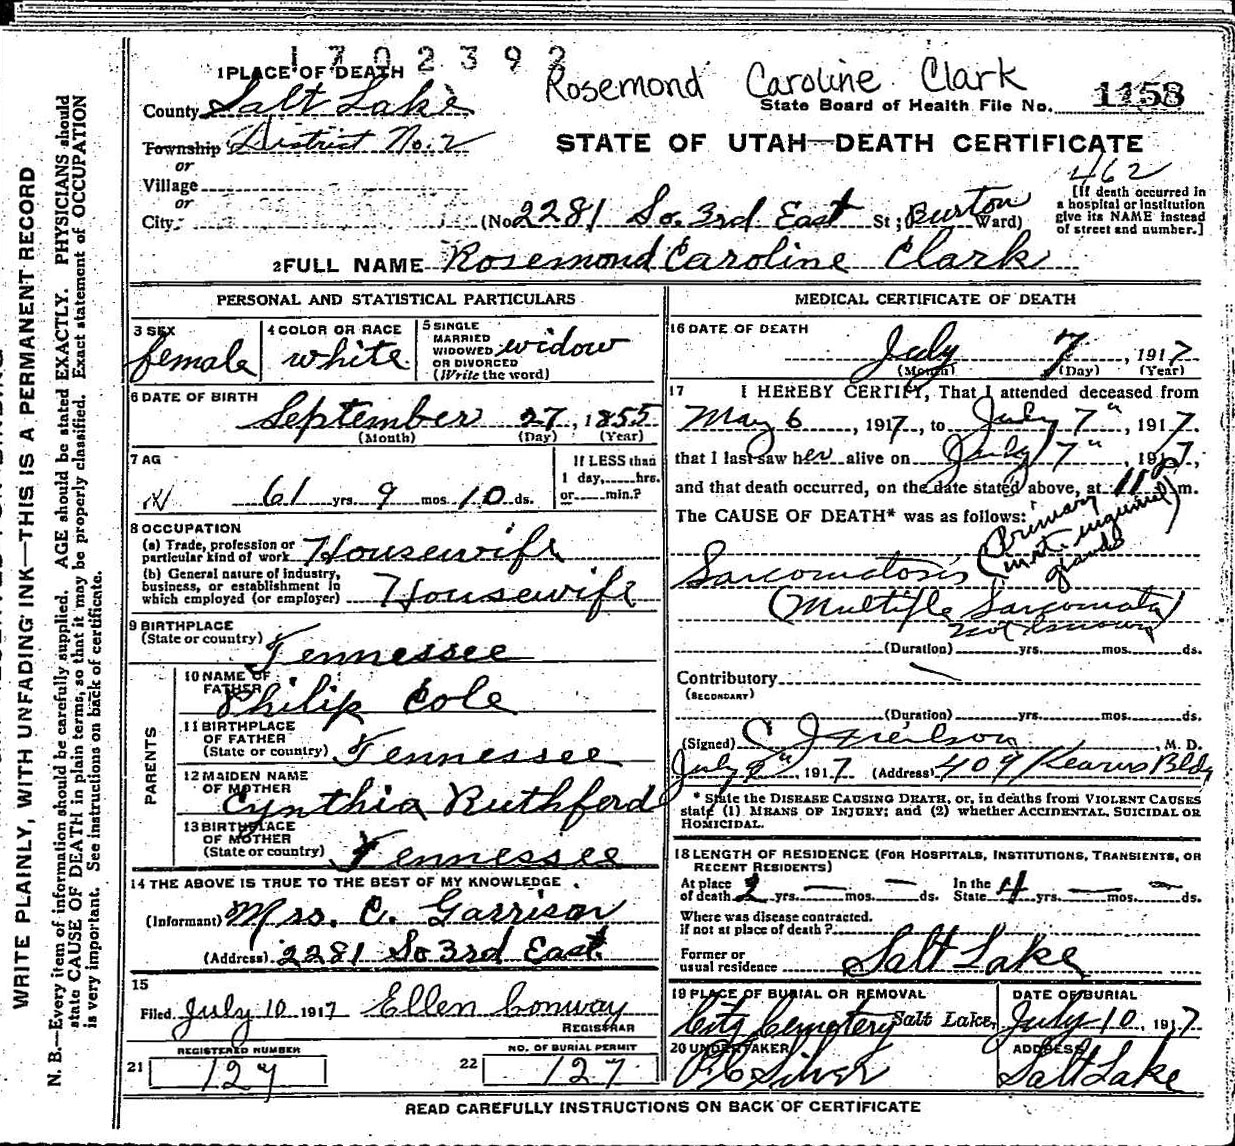 1702392
Rosemond Caroline Clark
1 PLACE OF DEATH
County Salt Lake
State Board of Health File No. 1158
Township District No. 2
or
Village
or
City
STATE OF UTAH—DEATH CERTIFICATE
462
[If death occurred in a hospital or institution give its NAME instead of street and number.]
(No. 2281 So. 3rd East St; Burton Ward)
2 FULL NAME Rosemond Caroline Clark
PERSONAL AND STATISTICAL PARTICULARS
3 SEX female
4 COLOR OR RACE white
5 SINGLE MARRIED WIDOWED OR DIVORCED (Write the word) widow
6 DATE OF BIRTH
September 27, 1855
(Month) (Day) (Year)
7 AG
61 yrs. 9 mos. 10 ds.
If LESS than 1 day, hrs. or min.?
8 OCCUPATION
(a) Trade, profession or particular kind of work Housewife
(b) General nature of industry, business, or establishment in which employed (or employer) Housewife
9 BIRTHPLACE
(State or country) Tennessee
PARENTS
10 NAME OF FATHER Philip Cole
11 BIRTHPLACE OF FATHER (State or country) Tennessee
12 MAIDEN NAME OF MOTHER Cynthia Ruthford
13 BIRTHPLACE OF MOTHER (State or country) Tennessee
14 THE ABOVE IS TRUE TO THE BEST OF MY KNOWLEDGE
(Informant) Mrs. C. Garrison
(Address) 2281 So 3rd East
15
Filed July 10 1917 Ellen Conway
REGISTRAR
REGISTERED NUMBER
21 127
NO. OF BURIAL PERMIT
22 127
MEDICAL CERTIFICATE OF DEATH
16 DATE OF DEATH
July 7, 1917
(Month) (Day) (Year)
17 I HEREBY CERTIFY, That I attended deceased from
May 6, 1917, to July 7", 1917
that I last saw her alive on July 7", 1917,
and that death occurred, on the date stated above, at 11 P m.
The CAUSE OF DEATH* was as follows:
(Primary in rt. inguinal glands)
Sarcomatosis
(Multiple Sarcomata)
not known
(Duration) yrs. mos. ds.
Contributory
(SECONDARY)
(Duration) yrs. mos. ds.
(Signed) M. D.
July 9th, 1917 (Address) 409 Kearns Bldg
* State the DISEASE CAUSING DEATH, or, in deaths from VIOLENT CAUSES
state (1) MEANS OF INJURY; and (2) whether ACCIDENTAL, SUICIDAL OR
HOMICIDAL.
18 LENGTH OF RESIDENCE (FOR HOSPITALS, INSTITUTIONS, TRANSIENTS, OR
RECENT RESIDENTS)
At place of death 2 yrs. — mos. — ds. In the State 4 yrs. — mos. — ds.
Where was disease contracted.
if not at place of death?
Former or usual residence Salt Lake
19 PLACE OF BURIAL OR REMOVAL
City Cemetery Salt Lake,
DATE OF BURIAL
July 10, 1917
20 UNDERTAKER
Silver
ADDRESS
Salt Lake
READ CAREFULLY INSTRUCTIONS ON BACK OF CERTIFICATE
WRITE PLAINLY, WITH UNFADING INK—THIS IS A PERMANENT RECORD
N. B.—Every item of information should be carefully supplied. AGE should be stated EXACTLY. PHYSICIANS should
state CAUSE OF DEATH in plain terms, so that it may be properly classified. Exact statement of OCCUPATION
is very important. See instructions on back of certificate.